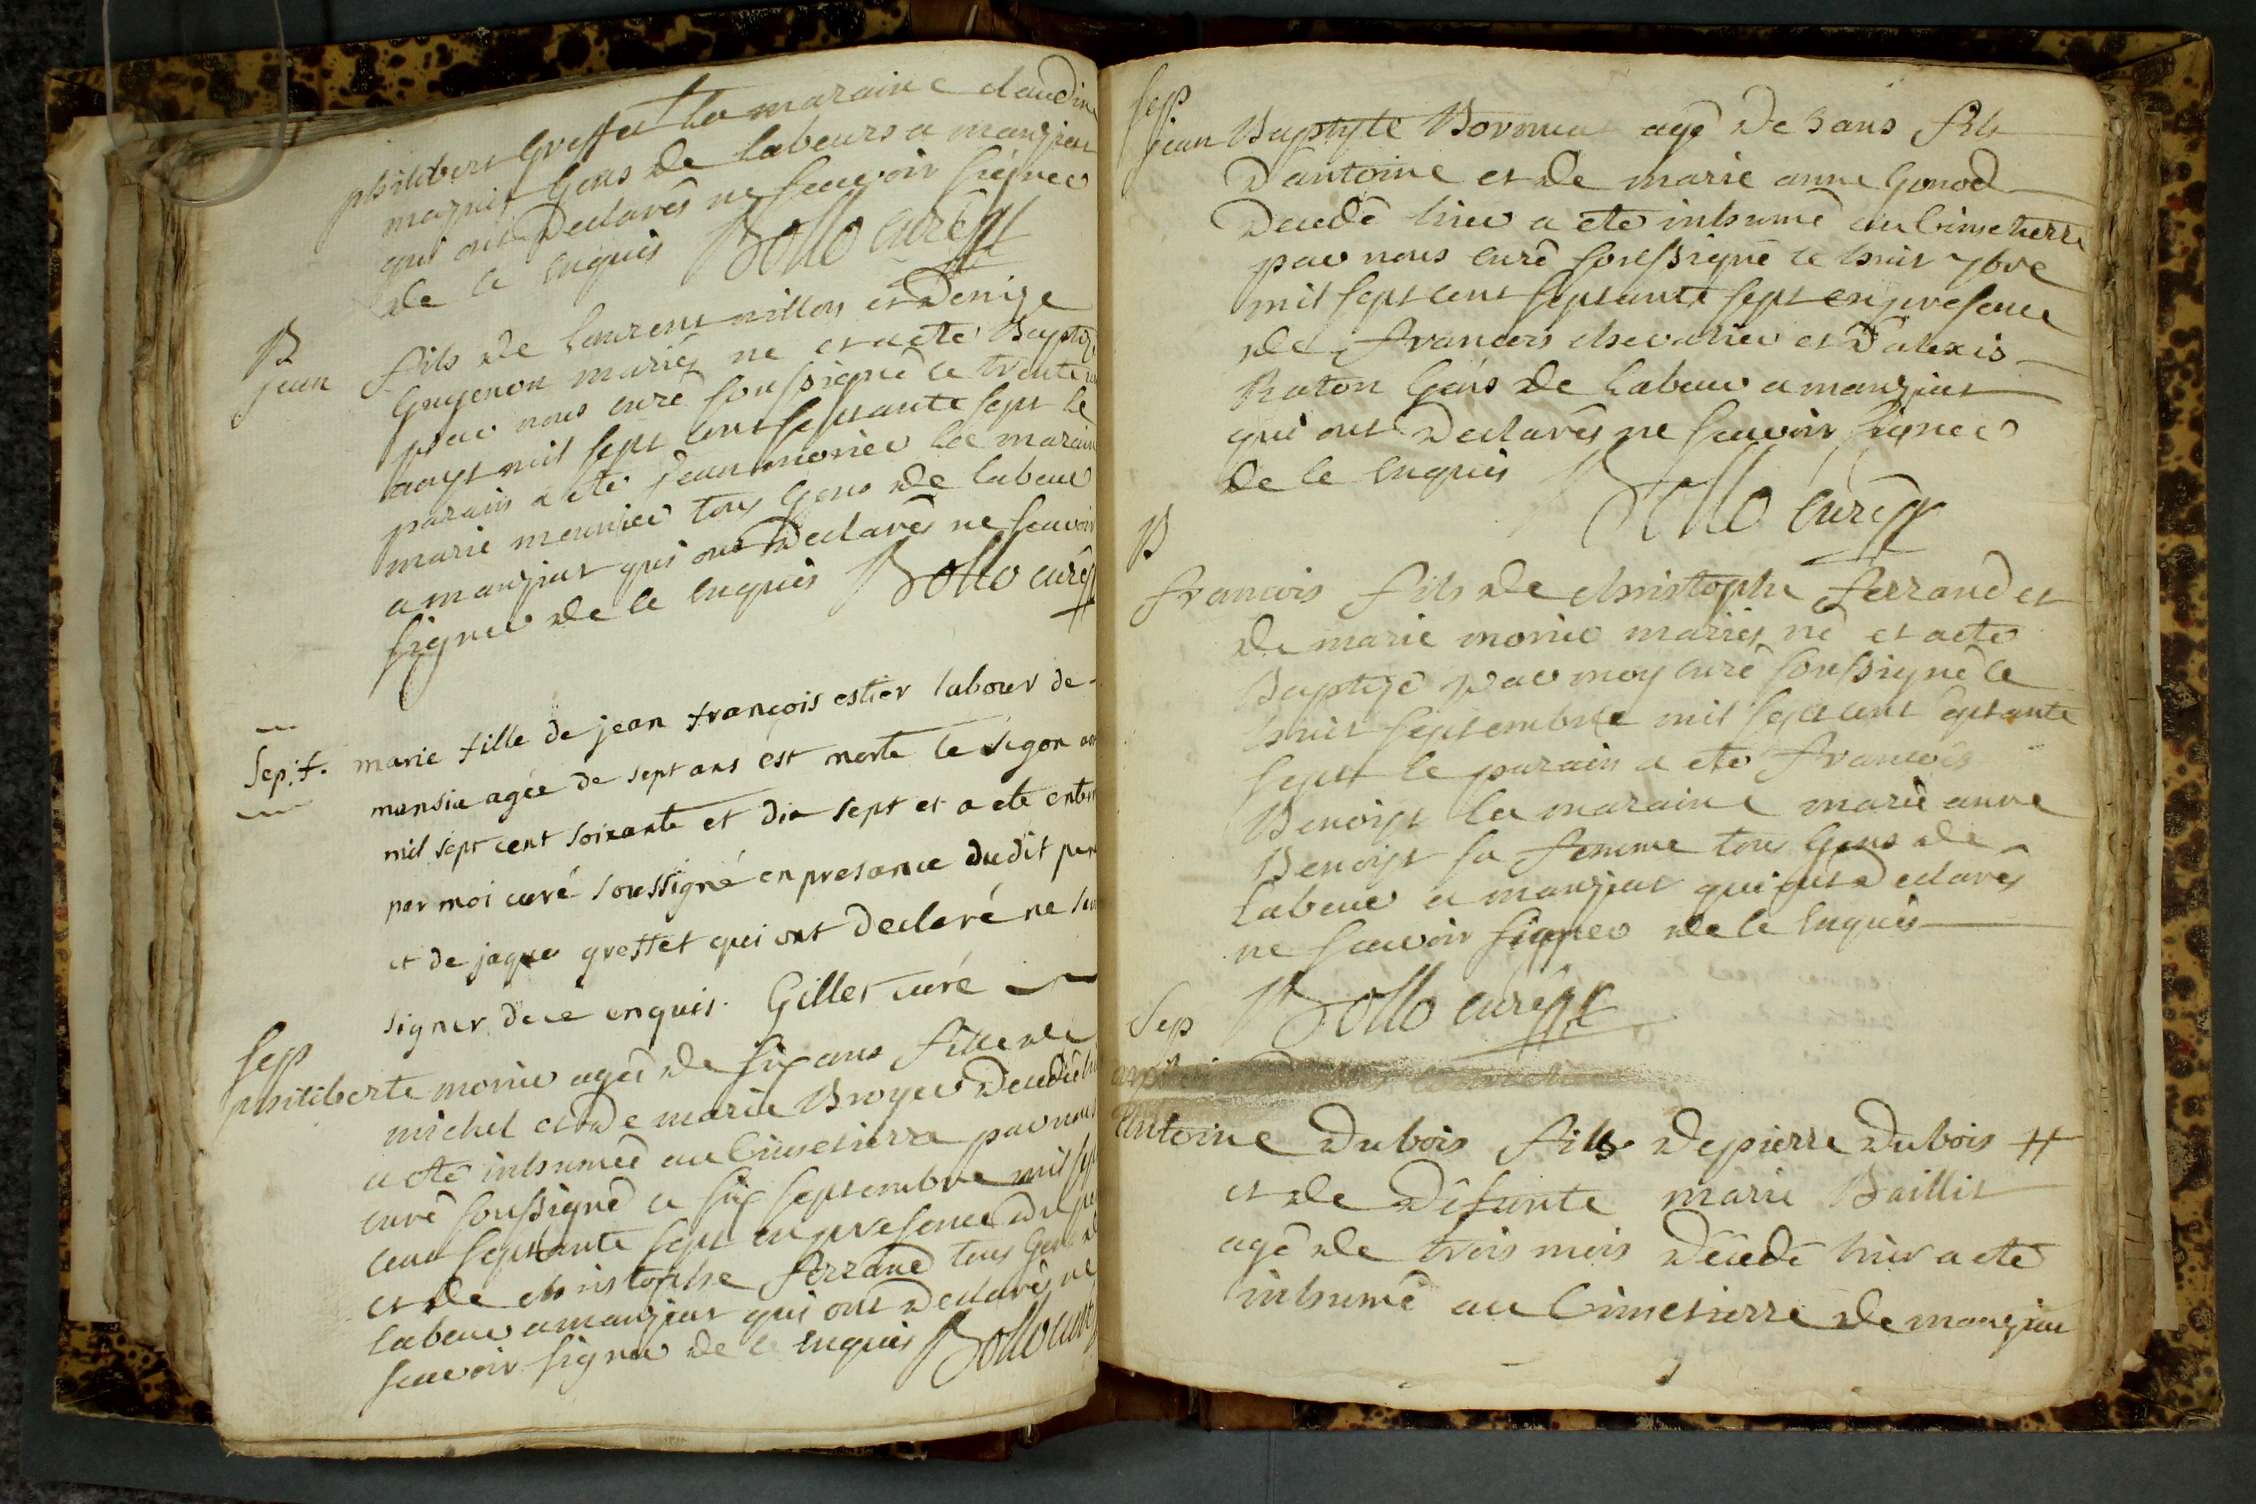 philibert Greffet la maraine claudine
maznis Gens de labeurs a manziat
qui ont declarês ne scavoir signer
de ce enquis Bollo curê
B
jean fils de laurent millon et denize
Guyenon mariés ne et a ete Baptizé
par nous curé soussigné le trente
aoust mil sept cent septante sept le
parain a ete jean monier la maraine
marie meunier tous Gens de labeur
a manziat qui ont declarês ne scavoir
signer de ce enquis Bollo curê
Sep:t. marie fille de jean françois estier labour de
mansia agée de sept ans est morte le
mil sept cent soixante et dix sept et a ete
par moi curé soussigné en presance dudit
et de jaque greffet qui ont declaré ne
signer de ce enquis. Gilles curé
sep
philiberte monier ageê de six ans fille de
michel et de marie Broyer decedeê
a etê inhumeê au Cimetierre par nous
curê soussignê ce six septembre mil sept
cent septante sept en presence du
et de christophe ferrand tous Gens de
labeur a manziat qui ont declarês ne
scavoir signer de ce enquis Bollo curê
sep
jean Baptyte agê de 3 ans fils
d'antoine et de marie anne Gonod
decedê hier a ete inhumê au Cimetierre
par nous curê soussignê le huit 7bre
mil sept cent septante sept en presence
de francois chevalier et d'alexis
Raton Gens de labeur a manziat
qui ont declarês ne scavoir signer
de ce enquis Bollo curê
B
francois fils de christophe ferrand et
de marie monier mariés nê et a ete
Baptizê par moy curê soussignê le
huit septembre mil sept cent septante
sept le parain a ete francois
Benoist la maraine marie anne
Benoist sa femme tous Gens de
labeur a manziat qui ont declarês
ne scavoir signer de ce enquis
Bollo curê
Sep
Antoine dubois fils de pierre dubois
et de defunte marie Baillit
agê de trois mois dêcedê hier a ete
inhumê au Cimetierre de manziat